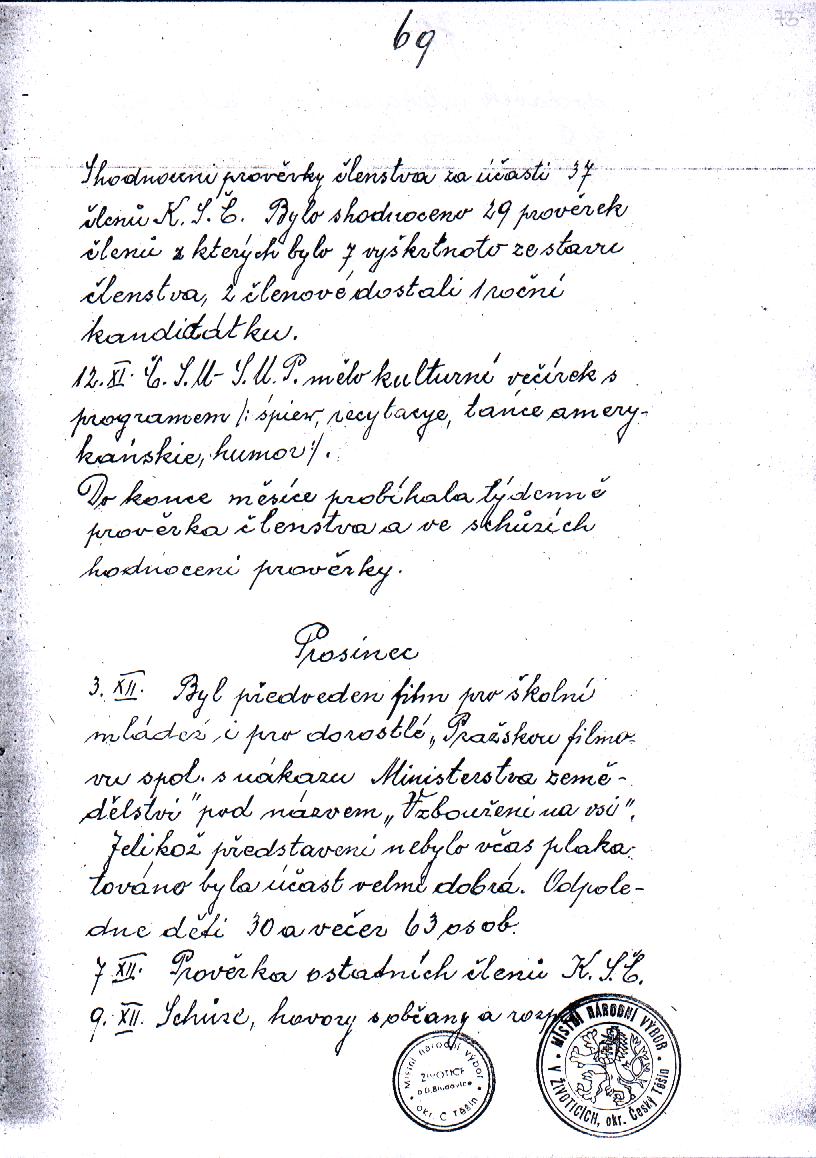 69
73
Shodnocení prověrky členstva za účasti 37
členů K.S.Č. Bylo shodnoceno 29 prověrek
členů z kterých bylo 7 vyškrtnoto ze stavu
členstva, 2 členové dostali 1 roční
kandidátku.
12. XI. Č.S.M-S.M.P. mělo kulturní večírek s
programem /: śpiew, recytacye, tańce amery-
kańskie, humor :/.
Do konce měsíce probíhala týdenně
prověrka členstva a ve schůzích
hodnocení prověrky.
Prosinec
3. XII. Byl předveden film pro školní
mládež i pro dorostlé „Pražskou filmo-
vu spol. s úkazu Ministerstva země-
dělství" pod názvem „Vzbouření na vsi".
Jelikož představení nebylo včas plaka-
továno byla účast velmi dobrá. Odpole-
dne děti 30 a večer 63 osob.
7 XII. Prověrka ostatních členů K.S.Č.
9. XII. Schůze, hovory s občany a
Místní národní výbor
ŽIVOTICE
okr. Č Těšín
MÍSTNÍ NÁRODNÍ VÝBOR
V ŽIVOTICÍCH, okr. Český Těšín